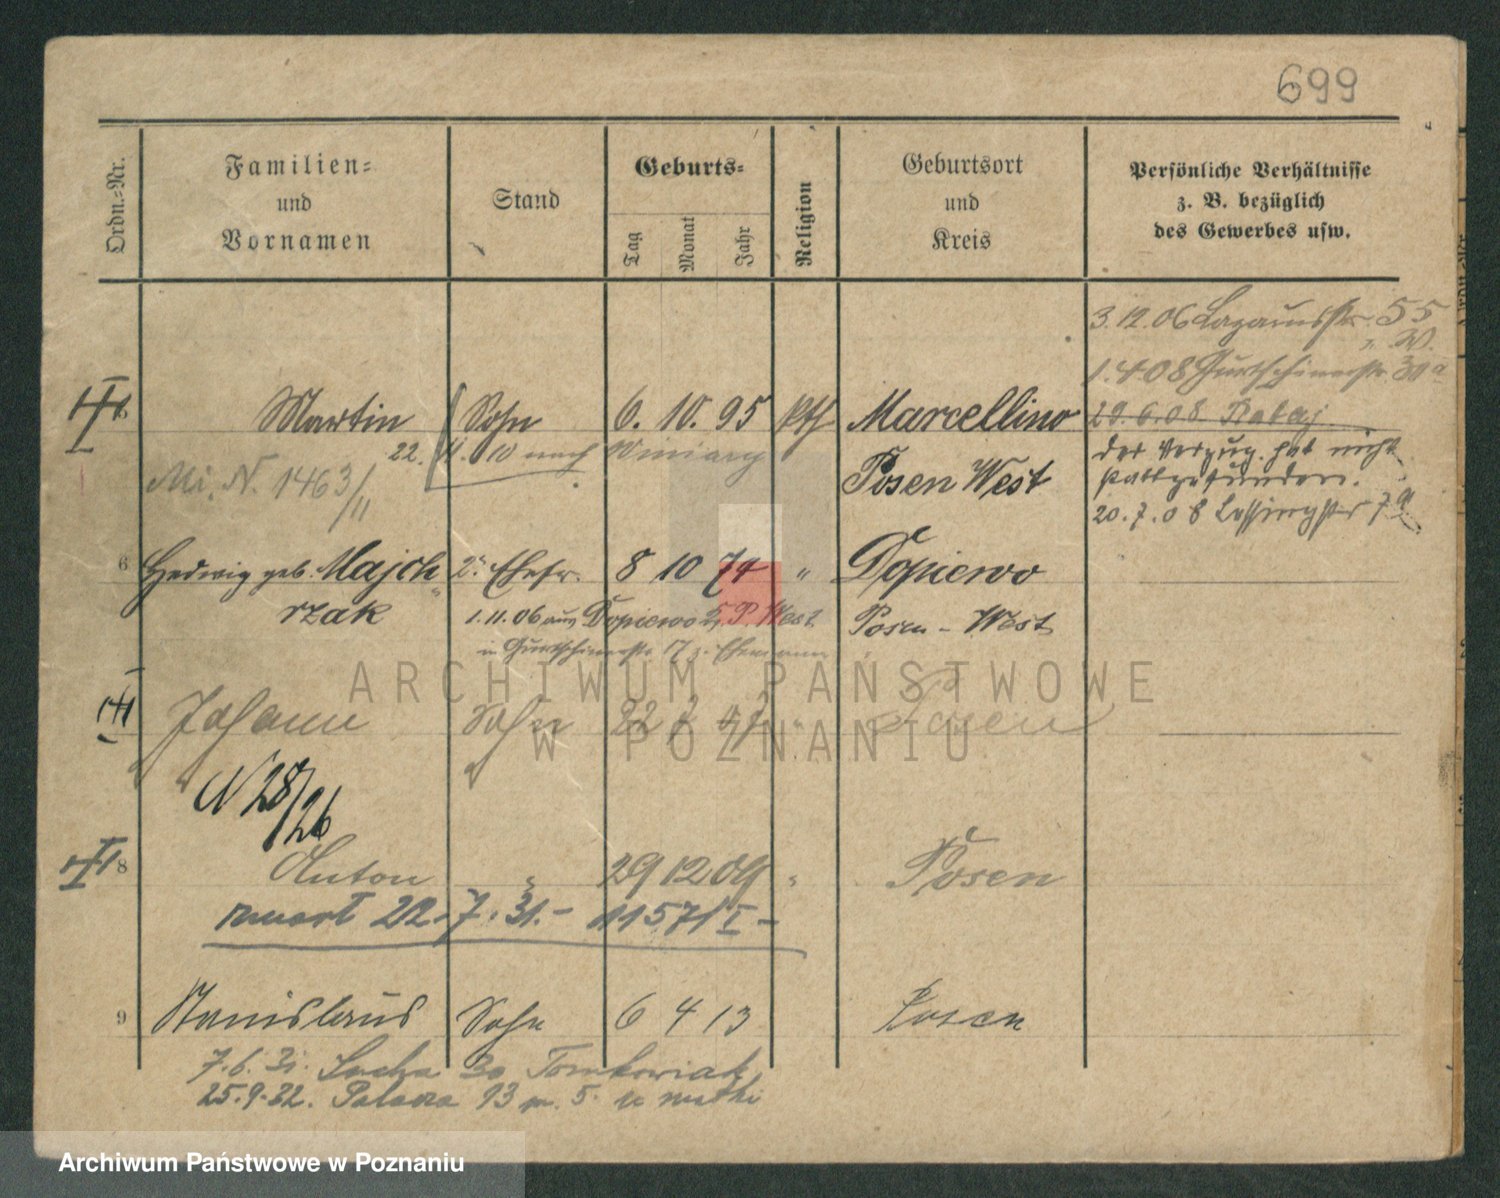 699
Ordn.-Nr.
Familien-
und
Vornamen
Stand
Geburts-
Tag
Monat
Jahr
Religion
Geburtsort
und
Kreis
Persönliche Verhältnisse
z. B. bezüglich
des Gewerbes usw.
3.12.06 Lazarusstr. 55
W.
1.4.08 Gurtschinerstr.
Martin Sohn 6. 10. 95 kth Marcellino
29.6.08 Rataj.
22. 11. 10 nach Winiary
der Verzug. hat nicht
stattgefunden.
Mi. N. 1463/11
Posen West
20.7.08 Lessingstr 7a
6 Hedwig geb. Majch 2. Ehefr. 8 10 74 " Dopiewo
rzak
1.11.06 aus Dopiewo P. West
Posen - West
in Gurtschinerstr. 17 z. Ehemann
Johann Sohn 22 Posen
N 28/26
8 Anton " 29 12 09 " Posen
22. 7. 31. - 11571 I -
9 Stanislaus Sohn 6 4 13 Posen
7.6.31. Sucha 30 Tomkowiak
25.9.32. Palacza 93 m. 5. u matki
ARCHIWUM PAŃSTWOWE
W POZNANIU
Archiwum Państwowe w Poznaniu